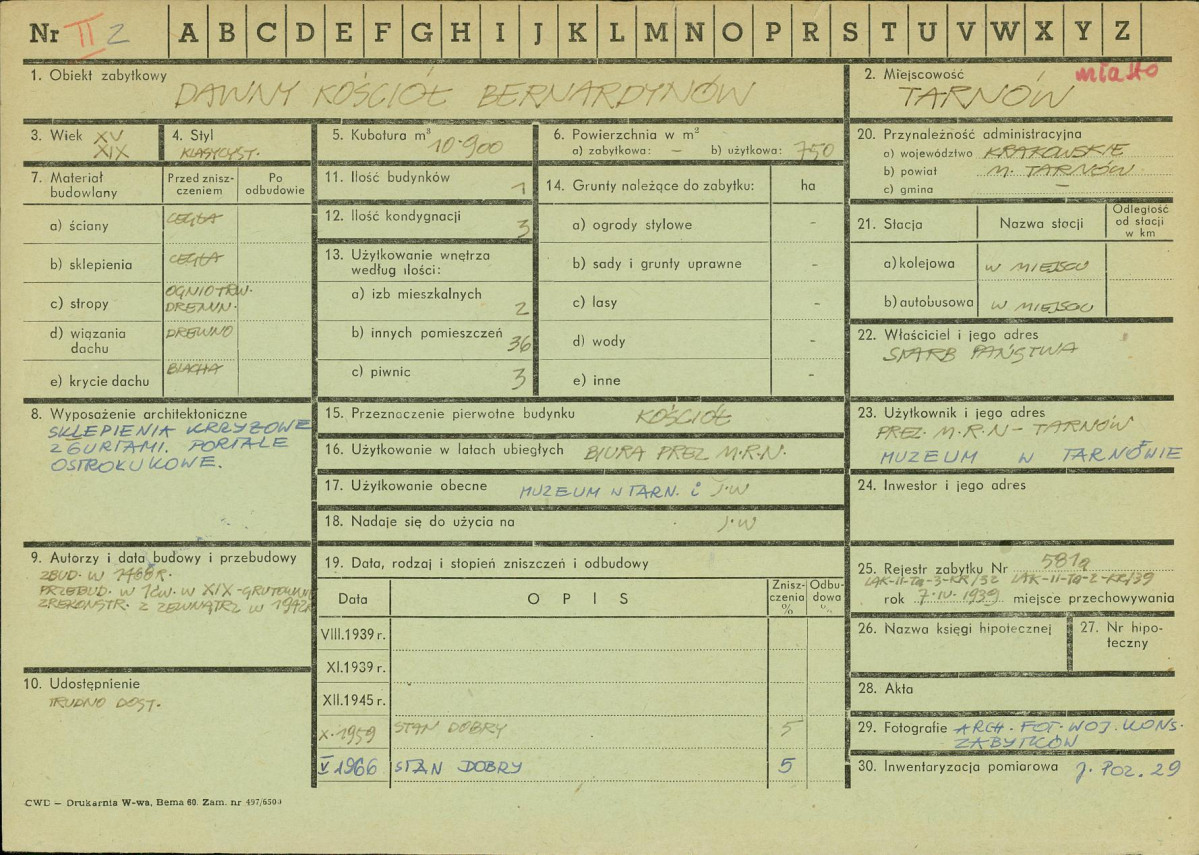 Nr II 2 A B C D E F G H I J K L M N O P R S T U V W X Y Z
1. Obiekt zabytkowy
DAWNY KOŚCIÓŁ BERNARDYNÓW
2. Miejscowość miasto
TARNÓW
3. Wiek XV
XIX
4. Styl
KLASYCYST.
5. Kubatura m³ 10.900
6. Powierzchnia w m²
a) zabytkowa: – b) użytkowa: 750
20. Przynależność administracyjna
a) województwo KRAKOWSKIE
b) powiat M. TARNÓW
c) gmina –
7. Materiał budowlany
Przed znisz-
czeniem
Po
odbudowie
a) ściany CEGŁA
b) sklepienia CEGŁA
c) stropy OGNIOTRW.
DREWN.
d) wiązania
dachu DREWNO
e) krycie dachu BLACHA
11. Ilość budynków 1
12. Ilość kondygnacji 3
13. Użytkowanie wnętrza
według ilości:
a) izb mieszkalnych 2
b) innych pomieszczeń 36
c) piwnic 3
14. Grunty należące do zabytku: ha
a) ogrody stylowe –
b) sady i grunty uprawne –
c) lasy –
d) wody –
e) inne –
21. Stacja Nazwa stacji Odległość
od stacji
w km
a) kolejowa W MIEJSCU
b) autobusowa W MIEJSCU
22. Właściciel i jego adres
SKARB PAŃSTWA
8. Wyposażenie architektoniczne
SKLEPIENIA KRZYŻOWE
Z GURTAMI. PORTALE
OSTROŁUKOWE.
15. Przeznaczenie pierwotne budynku KOŚCIÓŁ
16. Użytkowanie w latach ubiegłych BIURA PREZ M.R.N.
17. Użytkowanie obecne MUZEUM W TARN. i J.W
18. Nadaje się do użycia na J.W
23. Użytkownik i jego adres
PREZ. M.R.N – TARNÓW
MUZEUM W TARNOWIE
24. Inwestor i jego adres
9. Autorzy i data budowy i przebudowy
ZBUD. W 1468 R.
PRZEBUD. W XIX
ZREKONSTR. Z ZEWNĄTRZ W
19. Data, rodzaj i stopień zniszczeń i odbudowy
Data O P I S Znisz-
czenia
%
Odbu-
dowa
%
VIII.1939 r.
XI.1939 r.
XII.1945 r.
X.1959 STAN DOBRY 5
V 1966 STAN DOBRY 5
10. Udostępnienie
TRUDNO DOST.
25. Rejestr zabytku Nr 581a
rok 7.IV.1939 miejsce przechowywania
26. Nazwa księgi hipotecznej
27. Nr hipo-
teczny
28. Akta
29. Fotografie ARCH. FOT. WOJ. KONS.
ZABYTKÓW
30. Inwentaryzacja pomiarowa j. POZ. 29
CWD – Drukarnia W-wa, Bema 60. Zam. nr 497/650